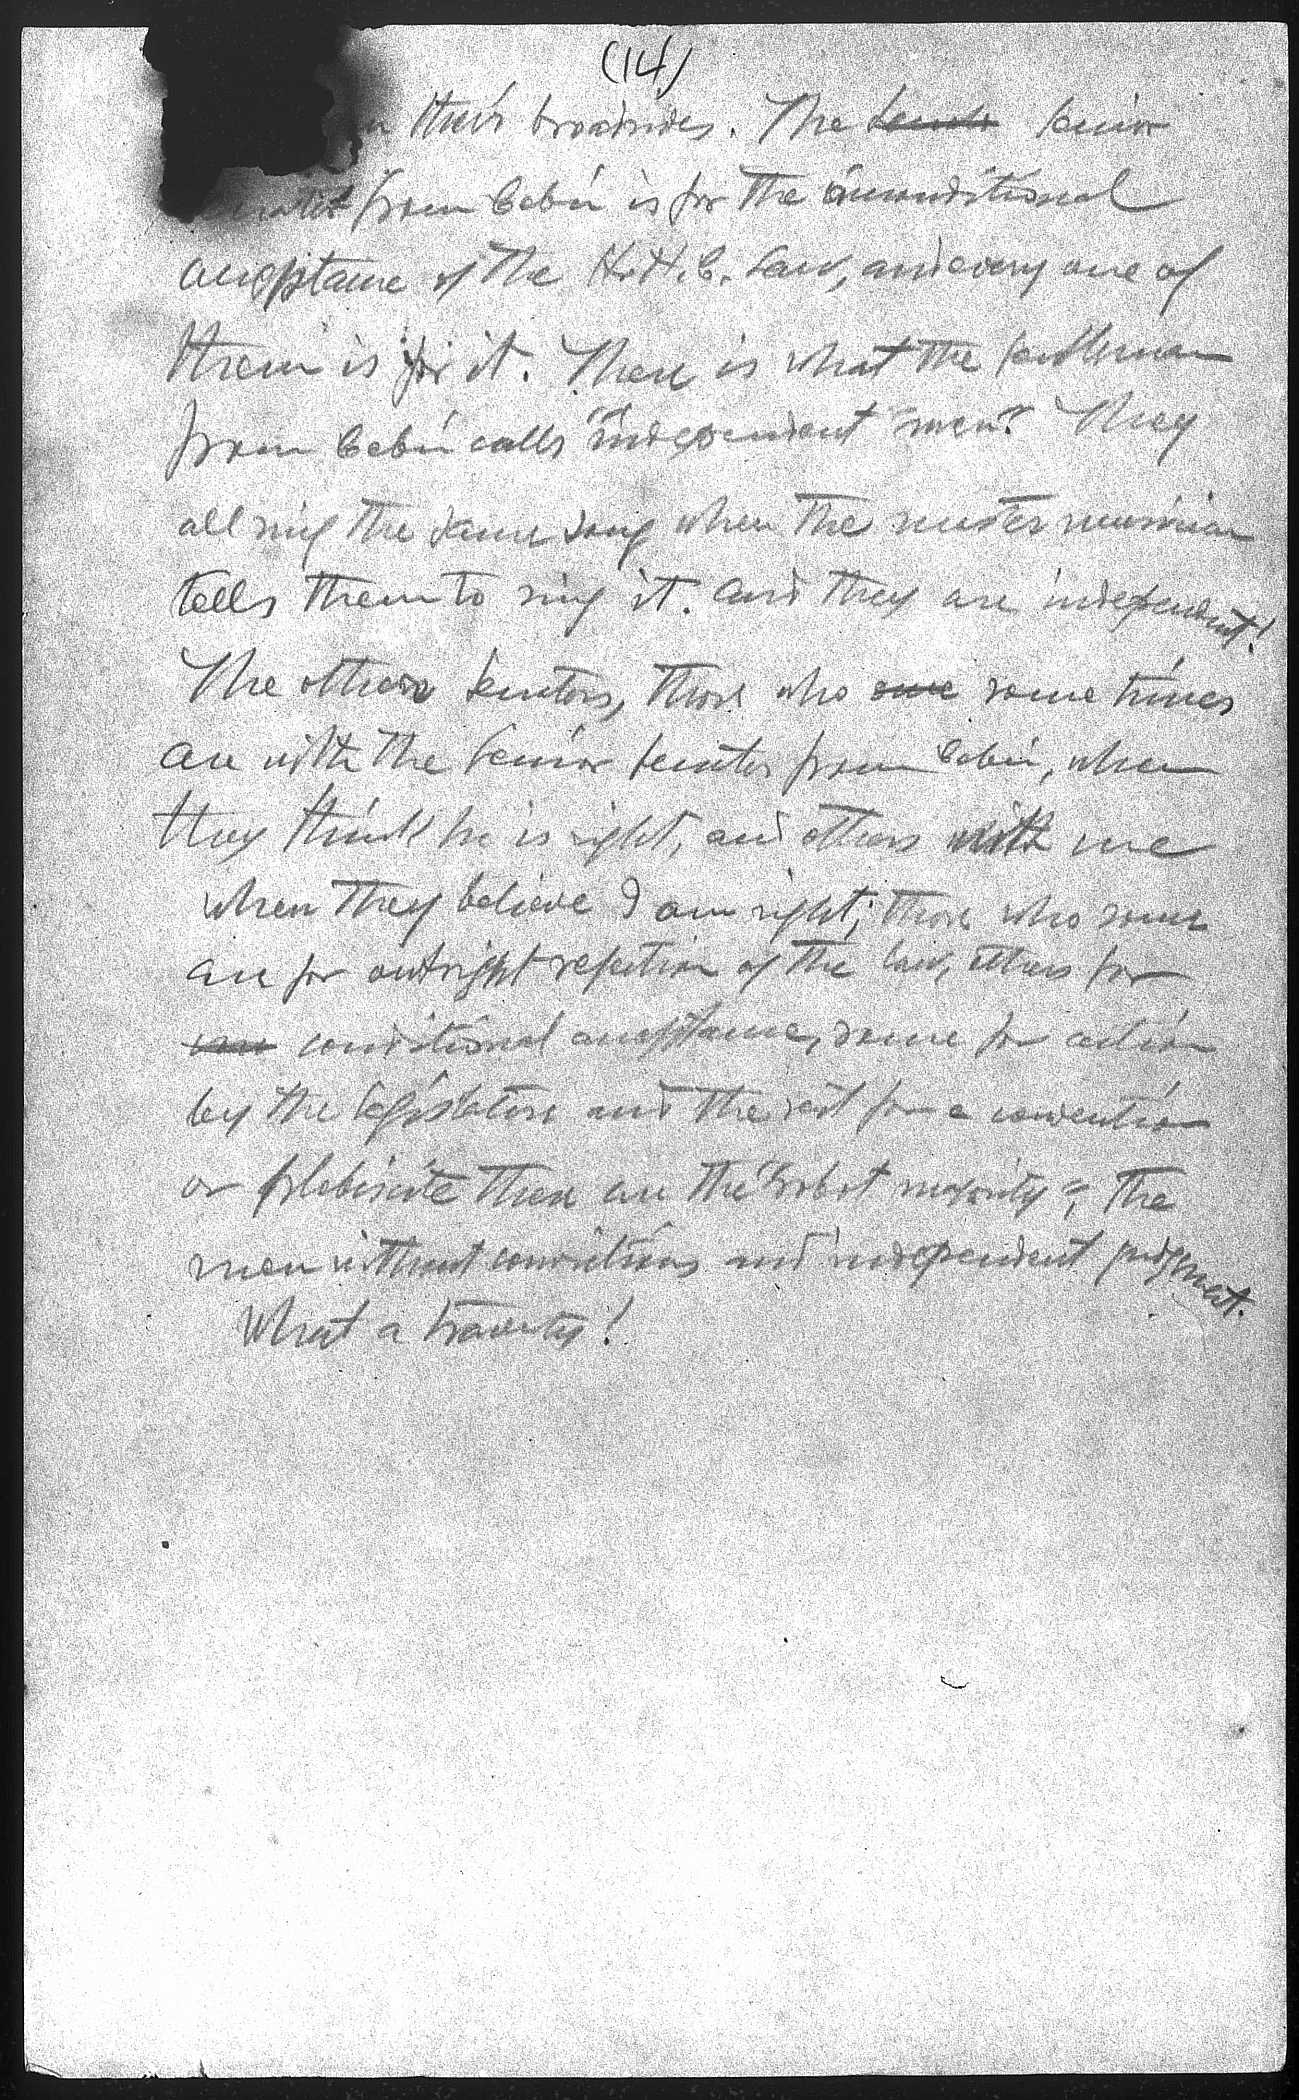 (14)
their broadsides. The Senior
from Cebú is for the unconditional
acceptance of the H.H.C. Law, and every one of
them is for it. There is what the gentleman
from Cebú calls "independent men". They
all sing the same song when the master musician
tells them to sing it. And they are independent!
The other Senators, those who some times
are with the Senior Senator from Cebú, when
they think he is right, and others with me
when they believe I am right; those who some
are for outright rejection of the law, others for
conditional acceptance, some for action
by the legislature and the rest for a convention
or plebiscite these are the "robot majority", the
men without convictions and independent judgment.
What a travesty!